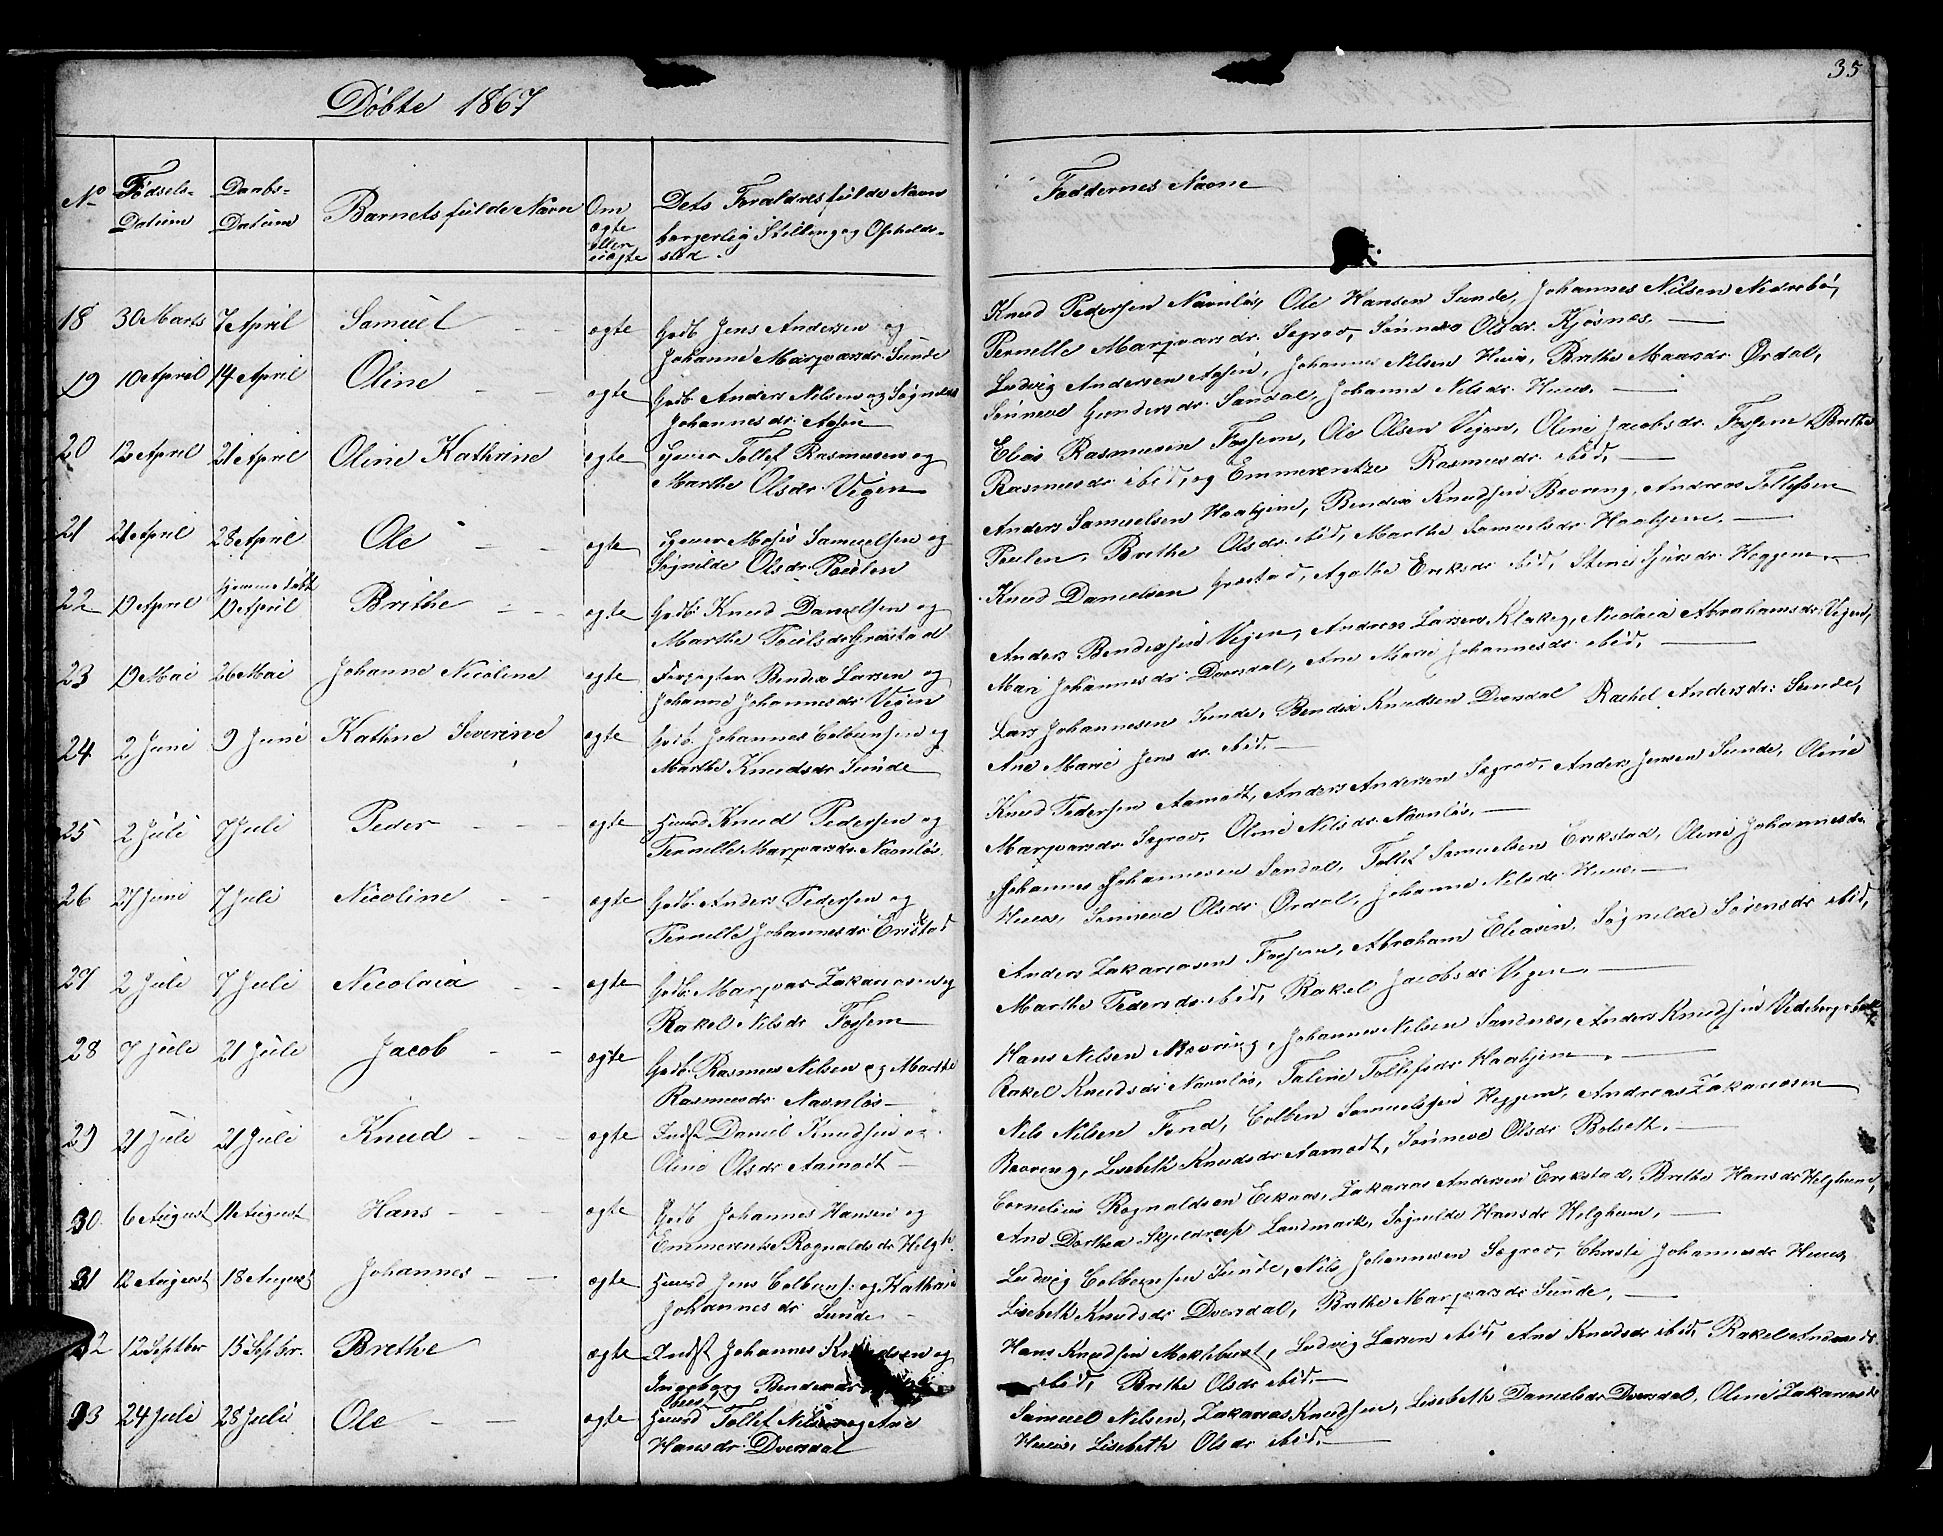 Døbte 1867
35
No
Fødsels-
Datum
Daabs-
Datum
Barnets fulde Navn
Om
ægte
eller
uægte
Dets Forældres fulde Navn
borgerlig Stilling og Opholds-
sted.
Faddernes Navne
18 30 Marts 7 April Samuel - - ægte Gdb. Jens Andersen og
Johanne Marqvarsdr. Sunde
Knud Pedersen Navnløs, Ole Hansen Sunde, Johannes Nilsen Nedrebø,
Pernille Marqvarsdr. Segrov, Sønneva Olsdr. Kjøsnes. —
19 10 April 14 April Oline - - ægte Gdb. Anders Nilsen og Søgnilde
Johannesdr. Aasen
Ludvig Andersen Aasen, Johannes Nilsen Huus, Brethe Maansdr. Ordal,
Sønneve Gundersdr. Sandal, Johanne Nilsdr. Huus. —
20 12 April 21 April Oline Kathrine ægte Gaver Tollef Rasmusen og
Marthe Olsdr. Vegen
Elias Rasmusen Fossem, Ole Olsen Vegen, Oline Jacobsdr. Fossem, Brethe
Rasmusdr. ibid, og Emmerentze Rasmusdr. ibid. —
21 21 April 28 April Ole - - ægte Gaver Moses Samuelsen og
Søgnilde Olsdr. Paulen
Anders Samuelsen Haahjem, Bendix Knudsen Bovring, Andreas Tollefsen
Paulen, Brethe Olsdr. ibid, Marthe Samuelsdr. Haahjem. —
22 19 April hjemmedøbt
19 April Brithe - - ægte Gdb. Knud Danielsen og
Marthe Poulsdr. Græstad
Knud Danielsen Græstad, Agathe Eriksdr. ibid, Stine Sjursdr. Heggem. —
23 19 Mai 26 Mai Johanne Nicoline ægte Forpagter Bendix Larsen og
Johanne Johannesdr. Vegen
Anders Bendixsen Vegen, Andreas Larsen Klakeg, Nicolaia Abrahamsdr. Vegen,
Mari Johannesdr. Dvergsdal, Ane Marie Johannesdr. ibid, —
24 2 Juni 9 Juni Kathne Severine ægte Gdb. Johannes Colbensen og
Marthe Knudsdr. Sunde
Lars Johannesen Sunde, Bendix Knudsen Dvergsdal Rachel Andersdr. Sunde,
Ane Marie Jens dr. ibid. —
25 2 Juli 7 Juli Peder - - ægte Huusmd Knud Pedersen og
Pernille Marqvarsdr. Navnløs.
Knud Pedersen Aamodt, Anders Andersen Segrov, Anders Jensen Sunde, Oline
Marqvarsdr. Segrov, Oline Nilsdr. Navnløs. —
26 27 Juni 7 Juli Nicoline - - ægte Gdb. Anders Pedersen og
Pernille Johannesdr. Erikstad
Johannes Johannesen Sandal, Tollef Samuelsen Erikstad, Oline Johannesdr.
Huus, Sønneve Olsdr. Ordal, Johanne Nilsdr. Huus. —
27 2 Juli 7 Juli Nicolaia - - ægte Gdb. Marqvar Zakariasen og
Rakel Nilsdr. Fossem
Anders Zakariasen Fossem, Abraham Eliasen, Søgnilde Sørensdr. ibid,
Marthe Pedersdr. ibid, Rakel Jacobsdr. Vegen. —
28 7 Juli 21 Juli Jacob - - ægte Gdb. Rasmus Nilsen og Marthe
Rasmusdr. Navnløs —
Hans Nilsen Bovring, Johannes Nilsen Sandnes, Anders Knudsen
Rakel Knudsdr. Navnløs, Taline Tollefsdr. Haahjem. —
29 21 Juli 21 Juli Knud - - - ægte Indst Daniel Knudsen og
Oline Olsdr. Aamodt —
Nils Nilsen Fond, Colben Samuelsen Heggem, Andreas Zakariasen
Bovring, Lisebeth Knudsdr. Aamodt, Sønneve Olsdr. Bolseth. —
30. 6 August 11 August Hans - - - ægte Gdb. Johannes Hansen og
Emmerentze Rognaldsdr. Helgh.
Cornelius Rognaldsen Eikaas, Zakarias Andersen Erikstad, Brithe Hansdr. Helghem,
Ane Dorthea Skjeldrup Landmark, Søgnilde Hansdr. Helghem, —
31 12 August 18 August Johannes - - ægte Huusmd Jens Colbens. og Kathrine
Johannesdr. Sunde -
Ludvig Colbensen Sunde, Nils Johannesen Segrov, Christi Johannesdr. Huus,
Lisebeth Knudsdr. Dvergsdal, Brithe Marqvarsdr. Sunde, —
32 12 Septber 15 Septbr. Brethe ægte Indst Johannes Knudsen og
Ingeborg Bendixdr.
Hans Knudsen Moklebust, Ludvig Larsen ibid, Ane Knudsdr. ibid, Rakel Andreasdr.
ibid, Brethe Olsdr. ibid. —
33 24 Juli 28 Juli Ole - - ægte Huusmd Tollef Nilsen og Ane
Hansdr. Dvergsdal
Samuel Nilsen, Zakarias Knudsen, Lisebeth Danielsdr. Dvergsdal, Oline Zakariasdr
Huus, Lisebeth Olsdr. ibid. —